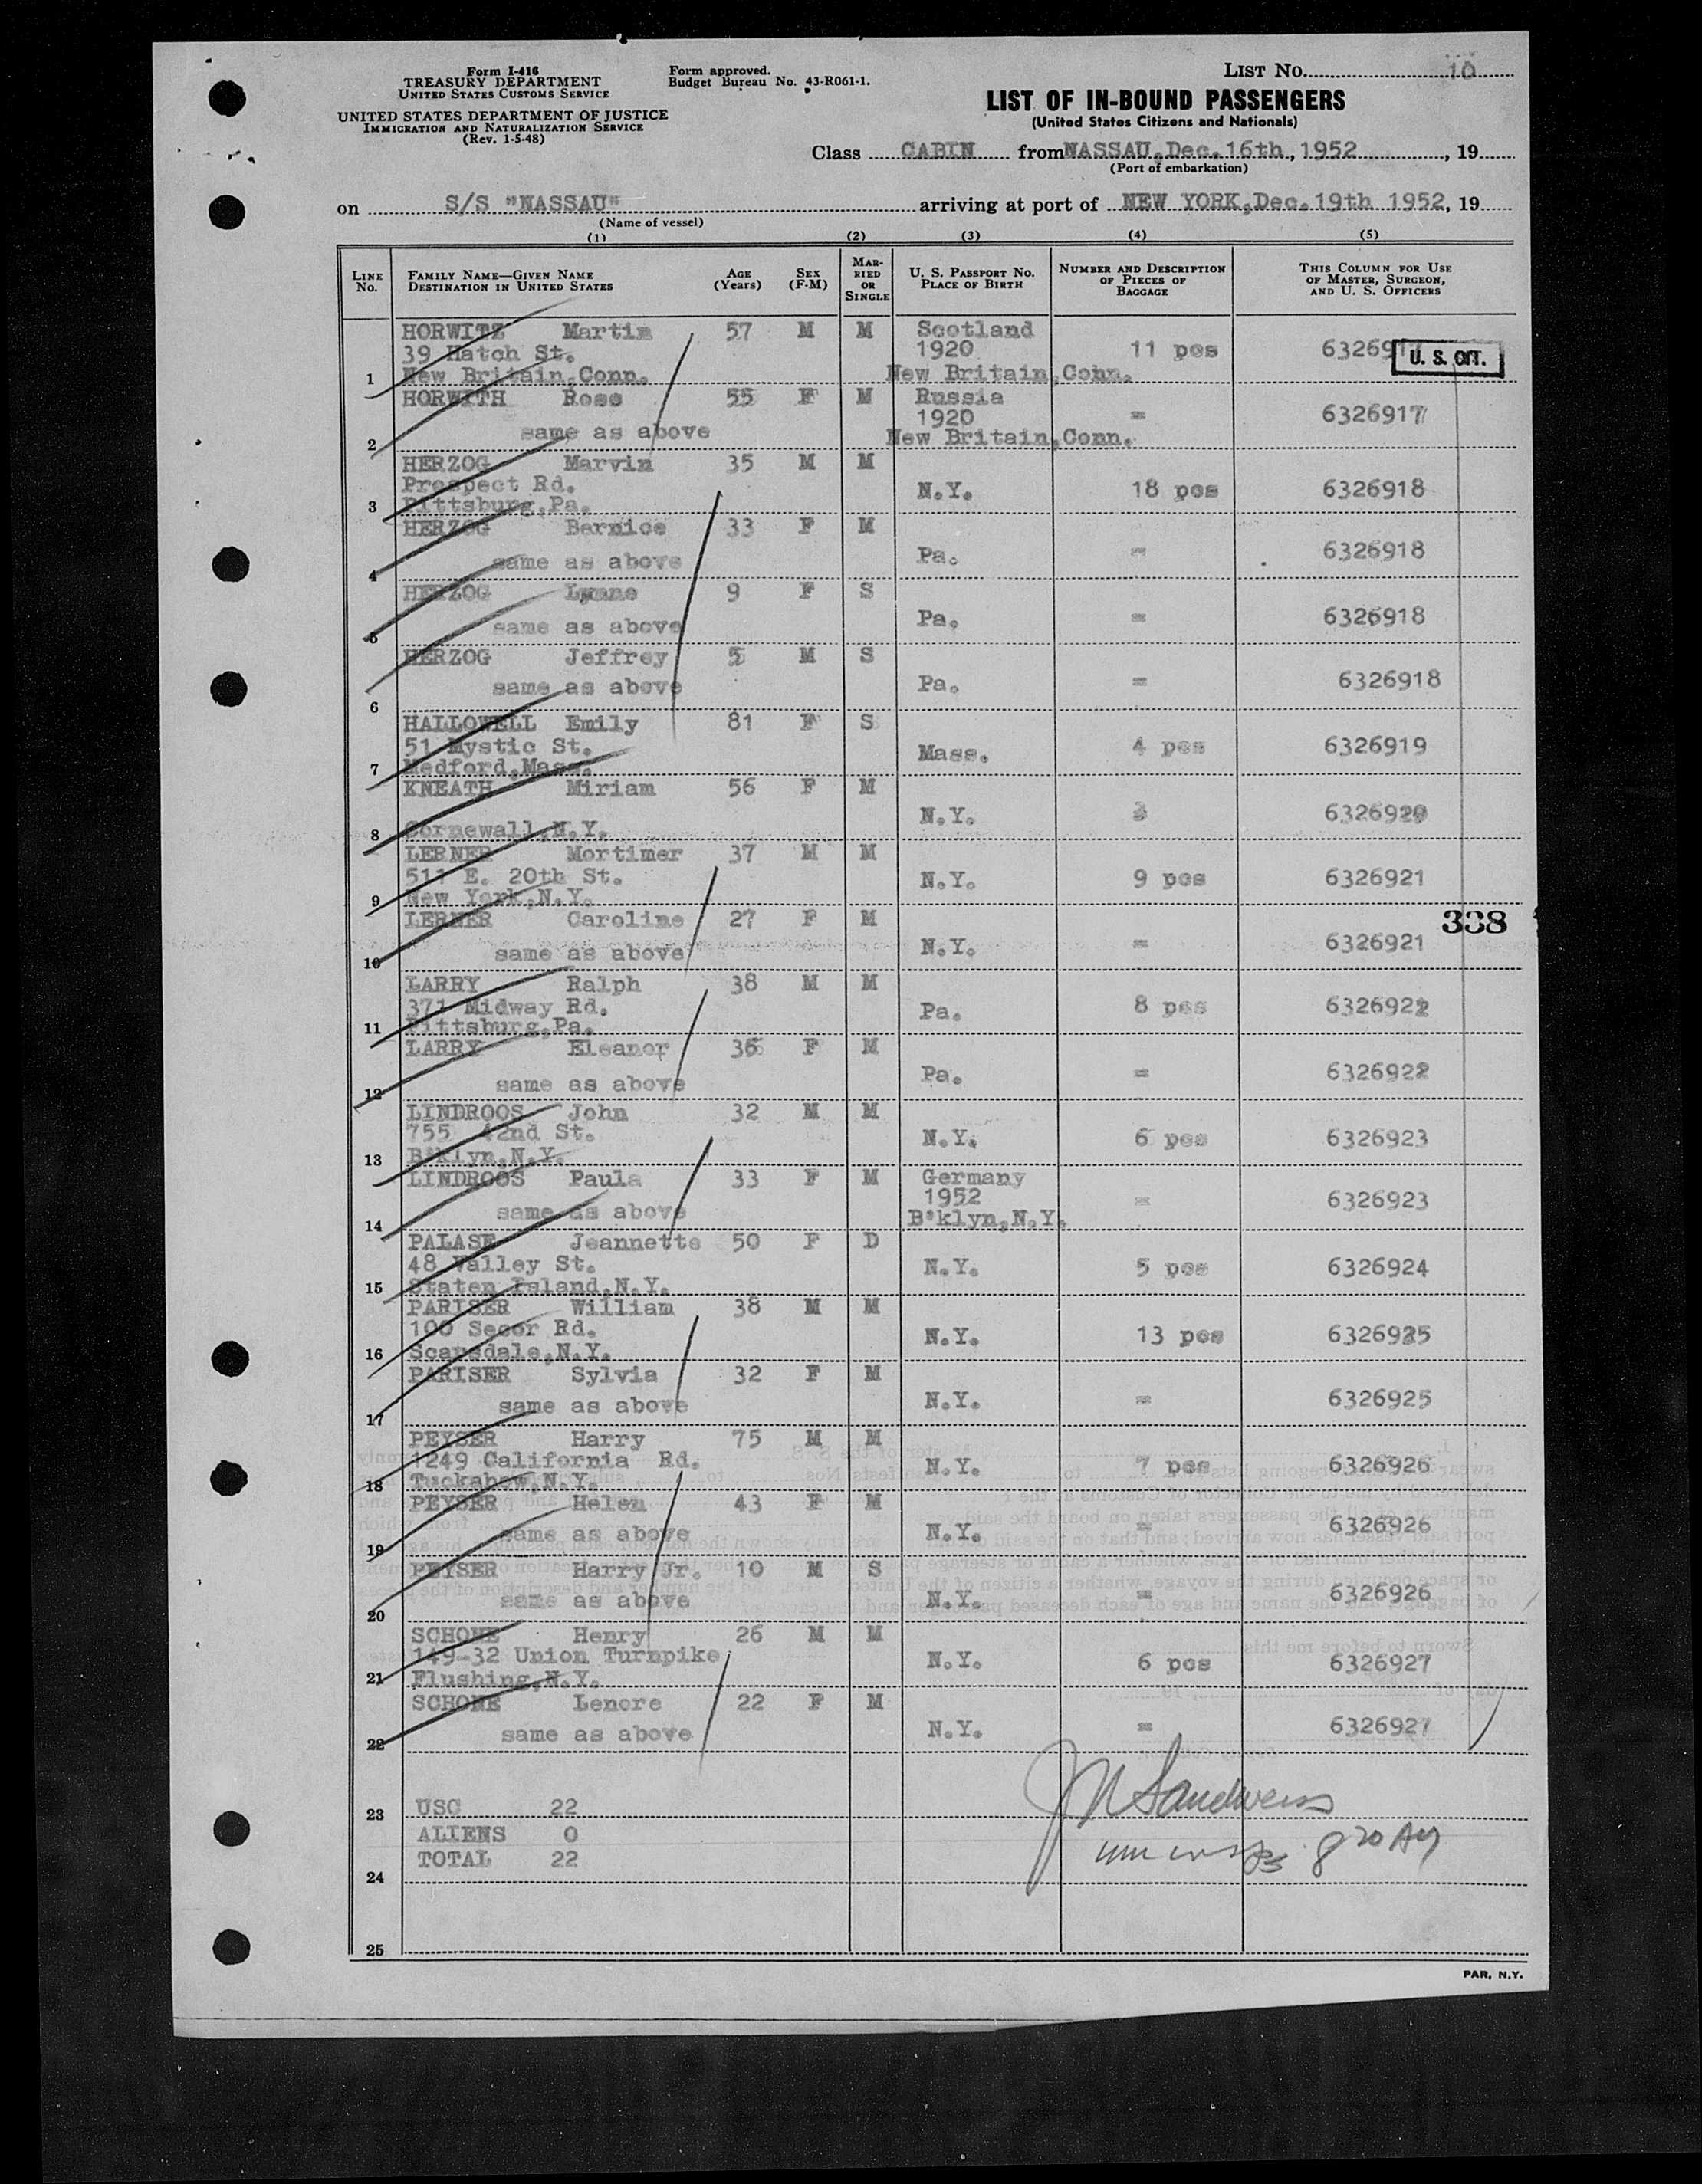 Form I-416
TREASURY DEPARTMENT
UNITED STATES CUSTOMS SERVICE
UNITED STATES DEPARTMENT OF JUSTICE
IMMIGRATION AND NATURALIZATION SERVICE
(Rev. 1-5-48)
Form approved.
Budget Bureau No. 43-R061-1.
LIST No. 10
LIST OF IN-BOUND PASSENGERS
(United States Citizens and Nationals)
Class CABIN from NASSAU, Dec. 16th, 1952, 19
(Port of embarkation)
on S/S "NASSAU" arriving at port of NEW YORK, Dec. 19th 1952, 19
(Name of vessel)
(1) (2) (3) (4) (5)
LINE No. FAMILY NAME—GIVEN NAME DESTINATION IN UNITED STATES AGE (Years) SEX (F-M) MARRIED OR SINGLE U. S. PASSPORT No. PLACE OF BIRTH NUMBER AND DESCRIPTION OF PIECES OF BAGGAGE THIS COLUMN FOR USE OF MASTER, SURGEON, AND U. S. OFFICERS
HORWITZ Martin 57 M M Scotland
39 Hatch St. 1920 11 pcs 6326917 U. S. CIT.
1 New Britain, Conn. New Britain, Conn.
HORWITH Rose 55 F M Russia
1920 = 6326917
2 same as above New Britain, Conn.
HERZOG Marvin 35 M M
Prospect Rd. N.Y. 18 pcs 6326918
3 Pittsburg, Pa.
HERZOG Bernice 33 F M
4 same as above Pa. = 6326918
HERZOG Lynne 9 F S
5 same as above Pa. = 6326918
HERZOG Jeffrey 5 M S
6 same as above Pa. = 6326918
HALLOWELL Emily 81 F S
51 Mystic St. Mass. 4 pcs 6326919
7 Medford, Mass.
KNEATH Miriam 56 F M
N.Y. 3 6326920
8 Cornewall, N.Y.
LERNER Mortimer 37 M M
511 E. 20th St. N.Y. 9 pcs 6326921
9 New York, N.Y.
LERNER Caroline 27 F M 338
10 same as above N.Y. = 6326921
LARRY Ralph 38 M M
371 Midway Rd. Pa. 8 pcs 6326922
11 Pittsburg, Pa.
LARRY Eleanor 36 F M
12 same as above Pa. = 6326922
LINDROOS John 32 M M
755 42nd St. N.Y. 6 pcs 6326923
13 B'klyn, N.Y.
LINDROOS Paula 33 F M Germany
1952 = 6326923
14 same as above B'klyn, N.Y.
PALASE Jeannette 50 F D
48 Valley St. N.Y. 5 pcs 6326924
15 Staten Island, N.Y.
PARISER William 38 M M
100 Secor Rd. N.Y. 13 pcs 6326925
16 Scarsdale, N.Y.
PARISER Sylvia 32 F M
17 same as above N.Y. = 6326925
PEYSER Harry 75 M M
1249 California Rd. N.Y. 7 pcs 6326926
18 Tuckahow, N.Y.
PEYSER Helen 43 F M
19 same as above N.Y. = 6326926
PEYSER Harry Jr. 10 M S
20 same as above N.Y. = 6326926
SCHONE Henry 26 M M
149-32 Union Turnpike N.Y. 6 pcs 6326927
21 Flushing, N.Y.
SCHONE Lenore 22 F M
22 same as above N.Y. = 6326927
23 USC 22
ALIENS 0
TOTAL 22
8 20 AM
24
25
PAR, N.Y.